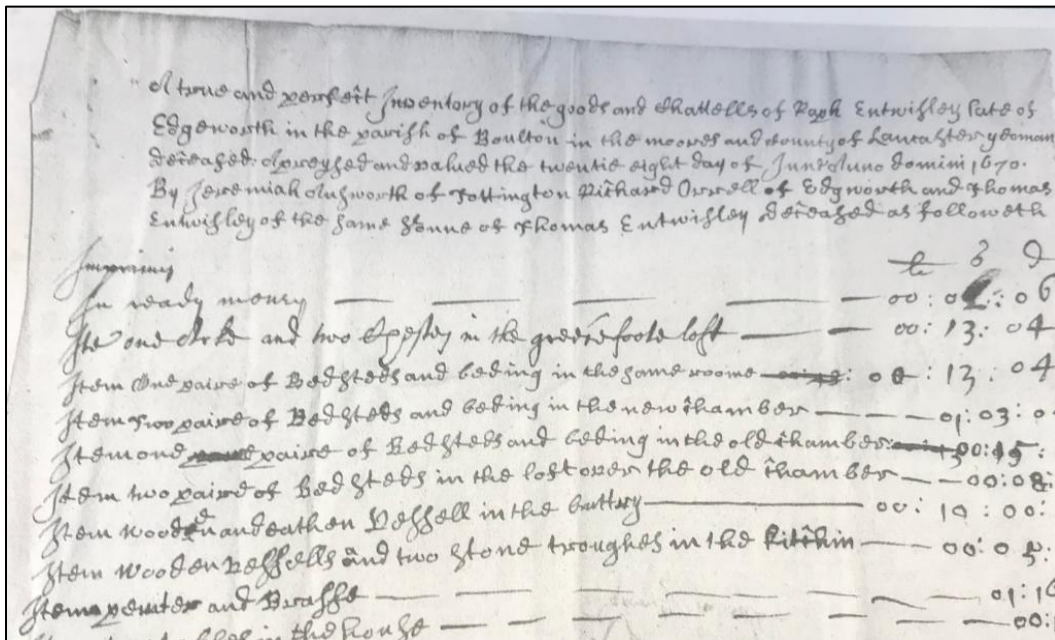 A true and perfect Inventory of the goods and Chattells of Entwisley late of
Edgeworth in the parish of Boulton in the moores and County of Lancaster yeoman
deceased. Apreysed and valued the twentie eight day of June Anno domini 1670.
By Jeremiah Ainsworth of Tottington Richard Orrell of Edgworth and Thomas
Entwisley of the same Sonne of Thomas Entwisley deceased as followeth
Imprimis li s d
In ready money — — — — — 00: : 06
Ite one Arke and two in the loft — — 00: 13: 04
Item One paire of Bedsteds and beding in the same roome : 00 : 13 : 04
Item two paire of Bedsteds and beding in the new chamber — — — 01: 03: 0
Item one paire of Bedsteds and beding in the old chamber: 00:15:
Item two paire of Bedsteds in the loft over the old chamber — — 00:08:
Item wooden and eathen Vessell in the buttry — 00: 10: 00:
Item wooden Vessells and two stone troughes in the kitchin — 00: 05:
Item pewter and Brasse — — — — — — — 01:16
in the house — — — — — — — 00: